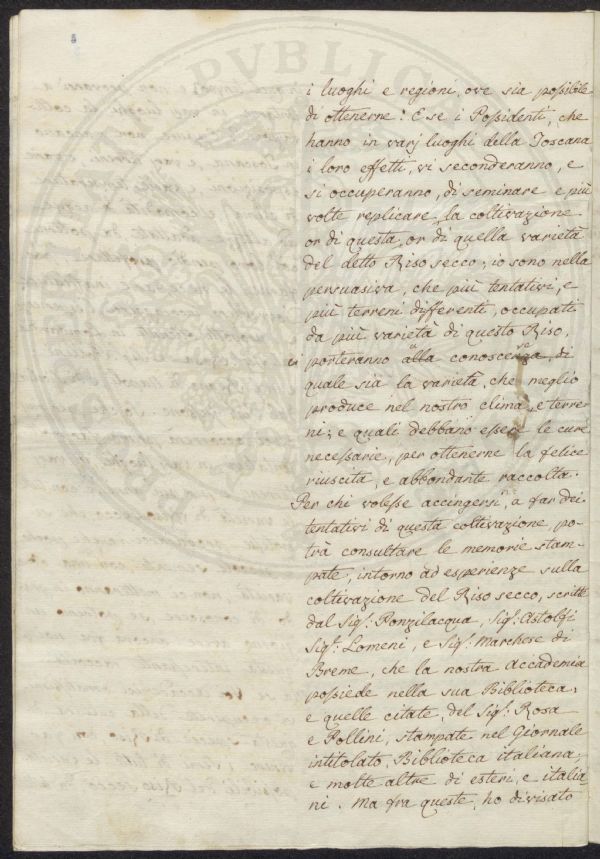 i luoghi e regioni, ove sia possibile
di ottenerne! E se i Possidenti, che
hanno in varj luoghi della Toscana
i loro effetti, vi seconderanno, e
si occuperanno, di seminare e più
volte replicare, la coltivazione
or di questa, or di quella varietà
del detto Riso secco; io sono nella
persuasiva, che più tentativi, e
più terreni differenti, occupati
da più varietà di questo Riso,
ci porteranno a conoscere
quale sia la varietà, che meglio
produce nel nostro clima, e terre-
ni; e quali debbano essere le cure
necessarie, per ottenerne la felice
riuscita, e abbondante raccolta.
Per chi volesse accingersi, a far dei
tentativi di questa coltivazione, po-
trà consultare le memorie stam-
pate, intorno ad esperienze sulla
coltivazione del Riso secco, scritte
dal Sig.r Ponzilacqua, Sig.r Astolfi
Sig.r Lomeni, e Sig.r Marchese di
Breme, che la nostra Accademia
possiede nella sua Biblioteca,
e quelle citate, del Sig.r Rosa
e Pollini, stampate nel Giornale
intitolato, Biblioteca italiana,
e molte altre di esteri, e italia-
ni. Ma fra queste, ho divisato
PVBLICA